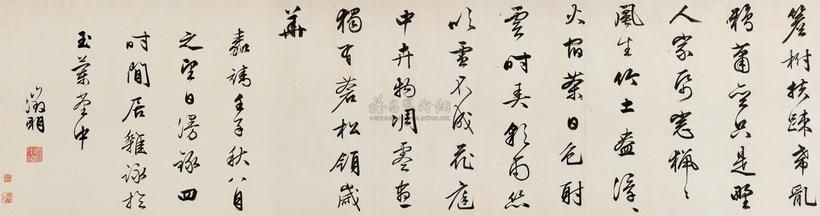 簷樹扶疎帶亂
鴉蕭齋只是野
人家紙窓獵〻
風生竹土盎浮〻
火宿茶日色射
雲時弄彩雨絲
吹雪不成花庭
中卉物凋零盡
獨有蒼松領歲
華
嘉靖壬子秋八月
之望日漫錄四
時閒居雜詠於
玉蘭堂中
徵明